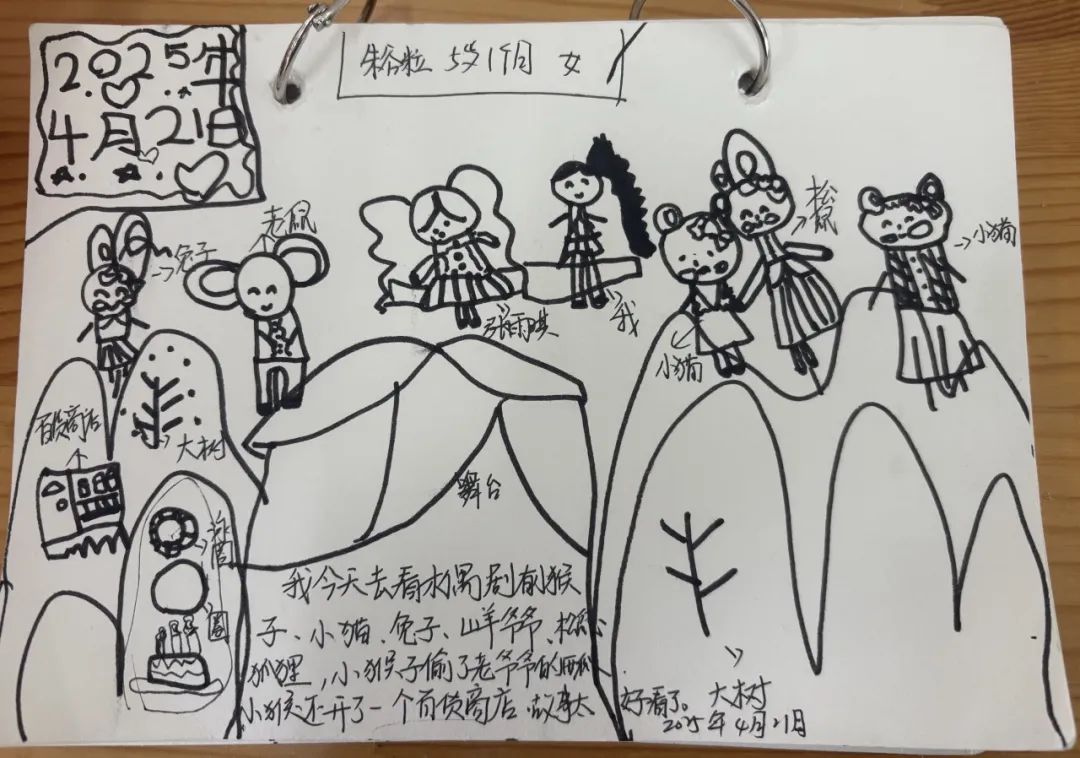 2025年
4月21日
5岁1个月 女
老鼠
兔子
松鼠
小猫
我
小猫
百货商店
大树
舞台
我今天去看木偶剧有小猴
子、小猫、兔子、山羊爷爷、松鼠
狐狸，小猴子偷了老爷爷的西瓜
小猴还开了一个百货商店 故事太
好看了。
大树
2025年4月21日